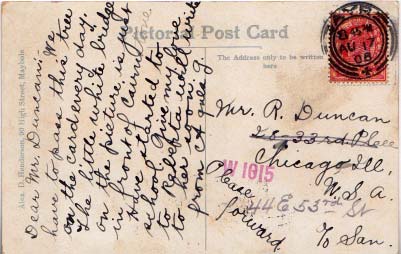 Pictorial Post Card
The Address only to be written
here
Alex. D. Henderson, 90 High Street, Maybole
Dear Mr. Duncan:- We
have to pass this tree
on the card every day.
The little white bridge
on the picture is just
in front of
Have started to
school. Give my love
to Rebbta will write
to her soon.
from Agnes G.
AYR
8 45 PM
AU 17
08
Mr. R. Duncan
28 - 33rd Place
Chicago Ill,
U.S.A.
W 1015
44 E 53rd St
Please
forward
To San.